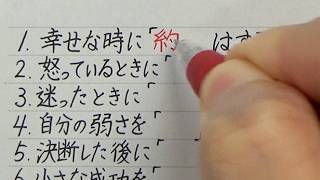 1. 幸せな時に「約 はす
2. 怒っているときに「
3. 迷ったときに「
4. 自分の弱さを「
5. 決断した後に「
6. 小さな成功を「